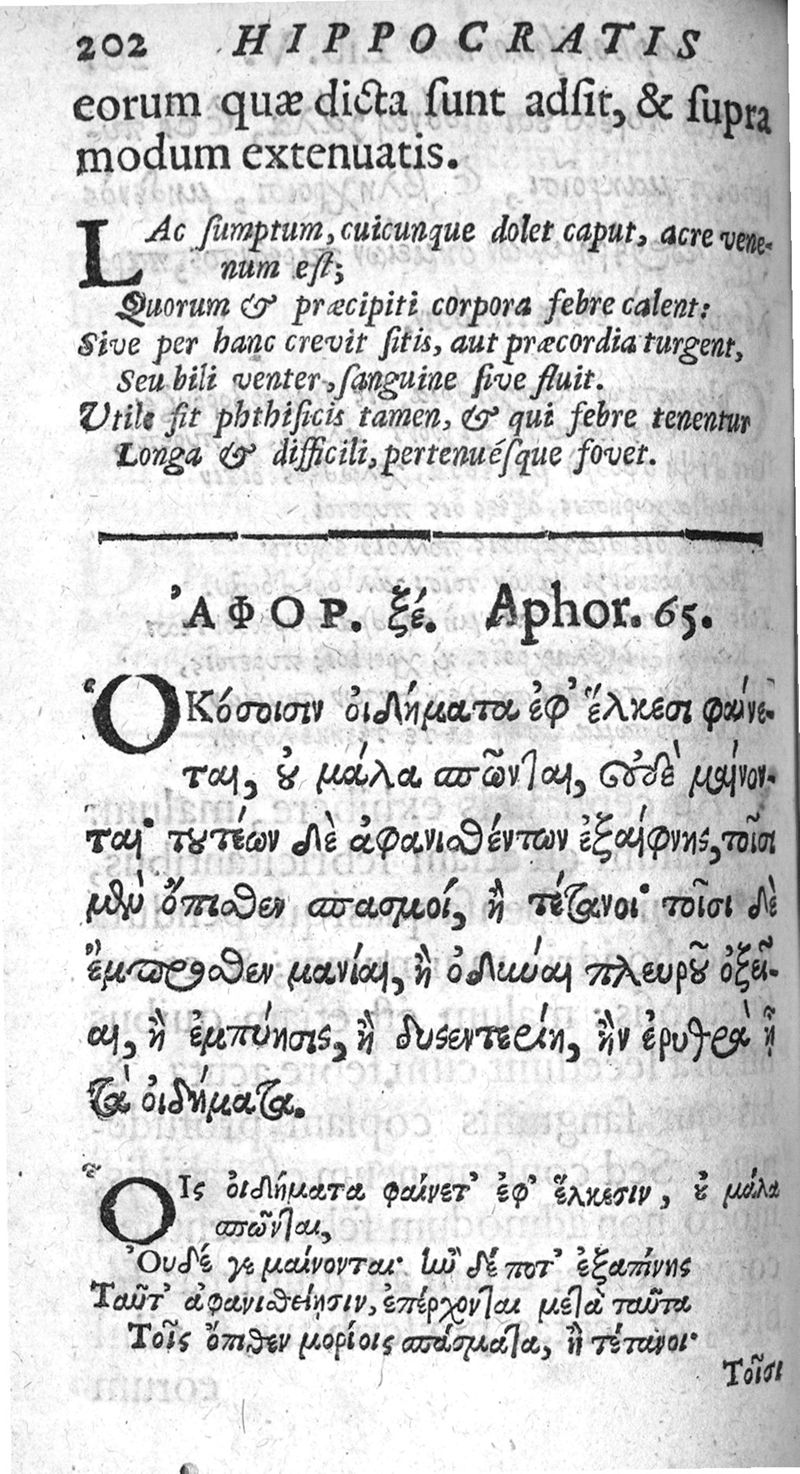 202 HIPPOCRATIS
eorum quæ dicta ſunt adſit, & ſupra
modum extenuatis.
LAc ſumptum, cuicunque dolet caput, acre vene-
num eſt;
Quorum & præcipiti corpora febre calent:
Sive per hanc crevit ſitis, aut præcordia turgent,
Seu bili venter, ſanguine ſive fluit.
Utile ſit phthiſicis tamen, & qui febre tenentur
Longa & difficili, pertenuéſque fovet.
ἈΦΟΡ. ξέ. Aphor. 65.
ὉΚόσοισιν οἰδήματα ἐφ' ἕλκεσι φαίνε-
ται, ȣ μάλα σπῶνται, ϗδὲ μαίνον-
ται· τȣτέων δὲ ἀφανισθέντων ἐξαίφνης, τοῖσι
μὲν ὄπισθεν σπασμοί, ἢ τέτανοι· τοῖσι δὲ
ἔμπροσθεν μανίαι, ἢ ὀδύναι πλευρȣ͂ ὀξεῖ-
αι, ἢ ἐμπύησις, ἢ δυσεντερίη, ἢν ἐρυθρὰ ᾖ
τὰ οἰδήματα.
ὍΙς οἰδήματα φαίνετ' ἐφ' ἕλκεσιν, ȣ μάλα
σπῶνται,
Ὀυδέ γε μαίνονται· ἢν δέ ποτ' ἐξαπίνης
Ταῦτ' ἀφανισθείησιν, ἐπέρχονται μετὰ ταῦτα
Τοῖς ὄπιθεν μορίοις σπάσματα, ἢ τέτανοι·
Τοῖσι